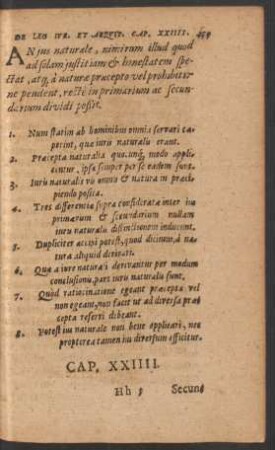 DE LEG IVR. ET AEQVIT. CAP. XXIIII.
AN jus naturale, nimirum illud quod
ad solam justitiam & honestatem spe
ctat, atq; à naturæ præcepto vel prohibitio
ne pendent, rectè in primarium ac secun-
darium dividi possit.
1. Num statim ab hominibus omnia servari cæ
perint, quæ juris naturalis erant.
2. Præcepta naturalia quæcunq; modo appli-
centur, ipsa semper per se eadem sunt.
3. Iuris naturalis vis omnis & natura in præci-
piendo posita.
4. Tres differentiæ supra consideratæ inter ius
primarum & secundarium nullam
iuris naturalis distinctionem inducunt.
5. Dupliciter accipi potest, quod dicitur, à na-
tura aliquid derivari.
6. Quæ a iure naturali derivantur per modum
conclusionis, pars iuris naturalis sunt.
7. Quod ratiocinatione egeant præcepta vel
non egeant, non facit ut ad diversa præ-
cepta referri debeant.
8. Potest ius naturale non bene applicari, nec
propterea tamen ius diversum efficitur.
CAP. XXIIII.
Hh 3 Secun-